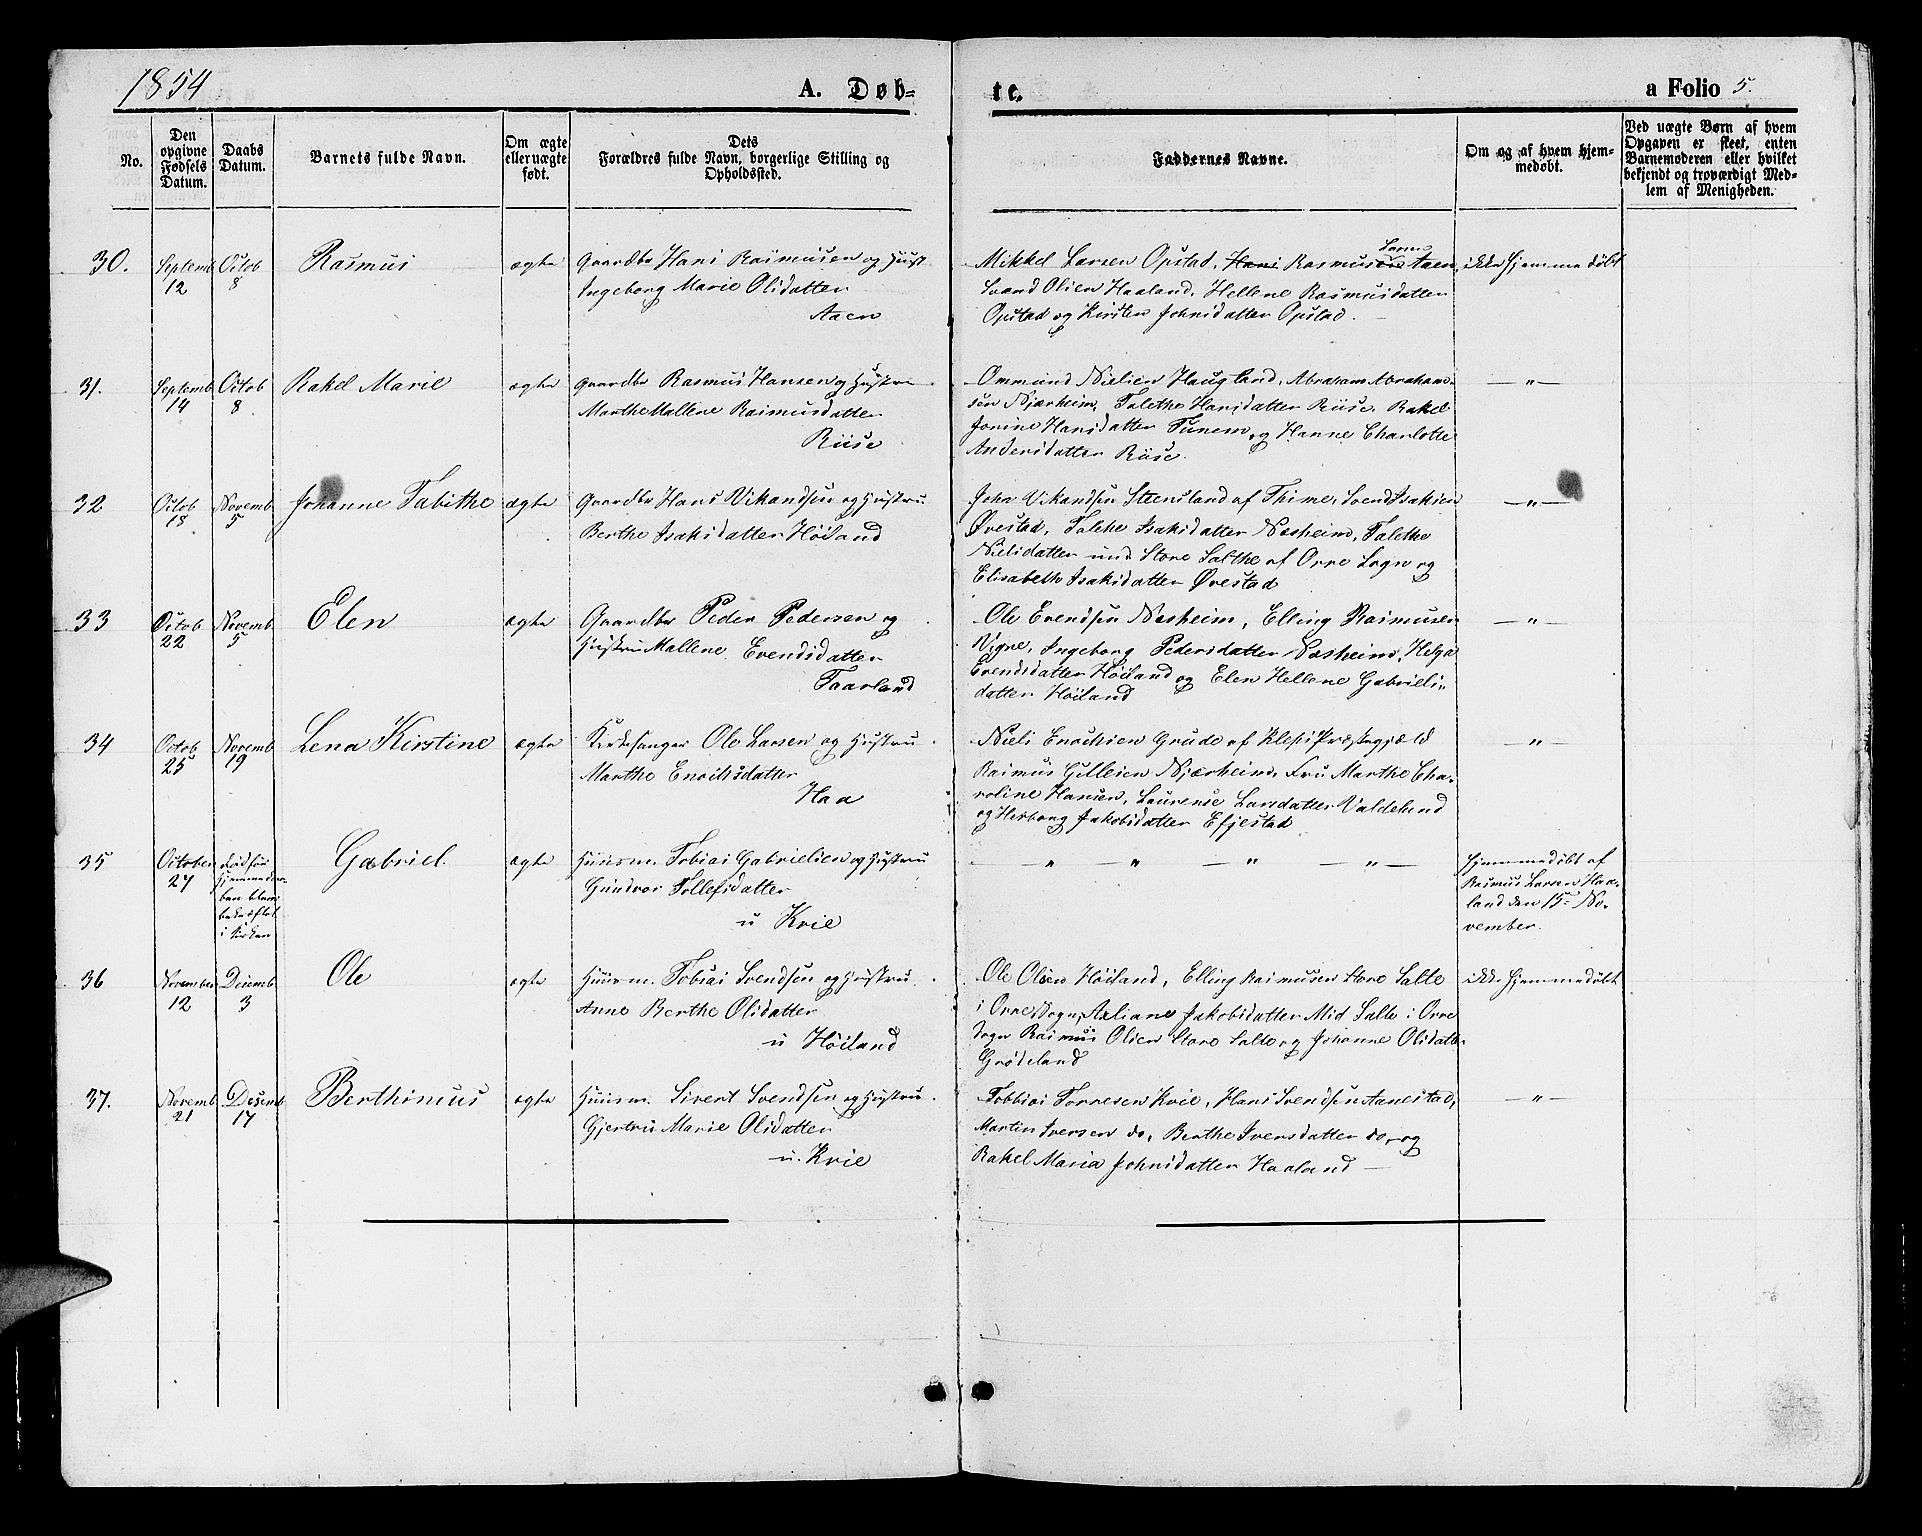 1854
A. Døb-
te.
a Folio 5.
No.
Den opgivne Fødsels Datum.
Daabs Datum.
Barnets fulde Navn.
Om ægte eller uægte født.
Dets Forældres fulde Navn, borgerlige Stilling og Opholdssted.
Faddernes Navne.
Om og af hvem hjemmedøbt.
Ved uægte Børn af hvem Opgaven er skeet, enten Barnemoderen eller hvilket bekjendt og troværdigt Medlem af Menigheden.
30.
Septemb 12
Octob 8
Rasmus
ægte
Gaardbr Hans Rasmusen og Hust
Ingeborg Marie Olsdatter
Aaen
Mikkel Larsen Opstad, Hans Rasmusen Aaen,
Svend Olsen Haaland, Hellene Rasmusdatter
Opstad og Kirsten Johnsdatter Opstad.
ikke hjemmedøbt
31.
Septemb 14
Octob 8
Rakel Marie
ægte
Gaardbr Rasmus Hansen og Hustru
Marthe Mallene Rasmusdatter
Riise
Ommund Nielsen Haugland, Abraham Abraham-
sen Njærheim, Talethe Hansdatter Riise, Rakel
Jorine Hansdatter Tunem og Hanne Charlotte
Andersdatter Riise.
— " —
32
Octob 18
Novemb 5
Johanne Tabithe
ægte
Gaardbr Hans Vikandsen og Hustru
Berthe Isaksdatter Høiland
John Vikandsen Steensland af Thime, Svend Isaksen
Ørestad, Talethe Isaksdatter Næsheim, Talethe
Nielsdatter und Store Salthe af Orre Sogn og
Elisabeth Isaksdatter Ørestad
— " —
33
Octob 22
Novemb 5
Elen
ægte
Gaardbr Peder Pedersen og
Hustru Mallene Evendsdatter
Taarland
Ole Evendsen Næsheim, Elling Rasmusen
Vigre, Ingeborg Pedersdatter Næsheim, Helga
Evendsdatter Høiland og Elen Hellene Gabriels-
datter Høiland
— " —
34
Octob 25
Novemb 19
Lena Kirstine
ægte
Kirkesanger Ole Larsen og Hustru
Marthe Enochsdatter
Haa
Niels Enochsen Grude af Kleps Præstegjæld
Rasmus Gillesen Njærheim, Fru Marthe Cha-
roline Hansen, Laurense Larsdatter Valdeland
og Herborg Jakobsdatter Efjestad
— " —
35
October 27
død før
hjemmedaa-
ben blev
bekræftet
i kirken
Gabriel.
ægte
Huusm. Tobias Gabrielsen og Hustru
Gundvor Tollefsdatter
u Kvie
— " — " — " — " —
Hjemmedøbt af
Rasmus Larsen Haa-
land den 15de No-
vember.
36
November 12
Decemb 3
Ole
ægte
Huusm. Tobias Svendsen og Hustru
Anne Berthe Olsdatter
u Høiland
Ole Olsen Høiland, Elling Rasmusen Store Salte
i Orre Sogn, Axliane Jakobsdatter Mid Salte i Orre
Sogn Rasmus Olsen Store Salte og Johanne Olsdatter
Grødeland
ikke hjemmedøbt
37.
Novemb 21
Desemb 17
Berthinius
ægte
Huusm. Sivert Svendsen og Hustru
Gjertru Marie Olsdatter
u. Kvie
Tobbias Torresen Kvie, Hans Svendsen Aanestad,
Martin Iversen do, Berthe Iversdatter do, og
Rakel Maria Johnsdatter Haaland —
— " —